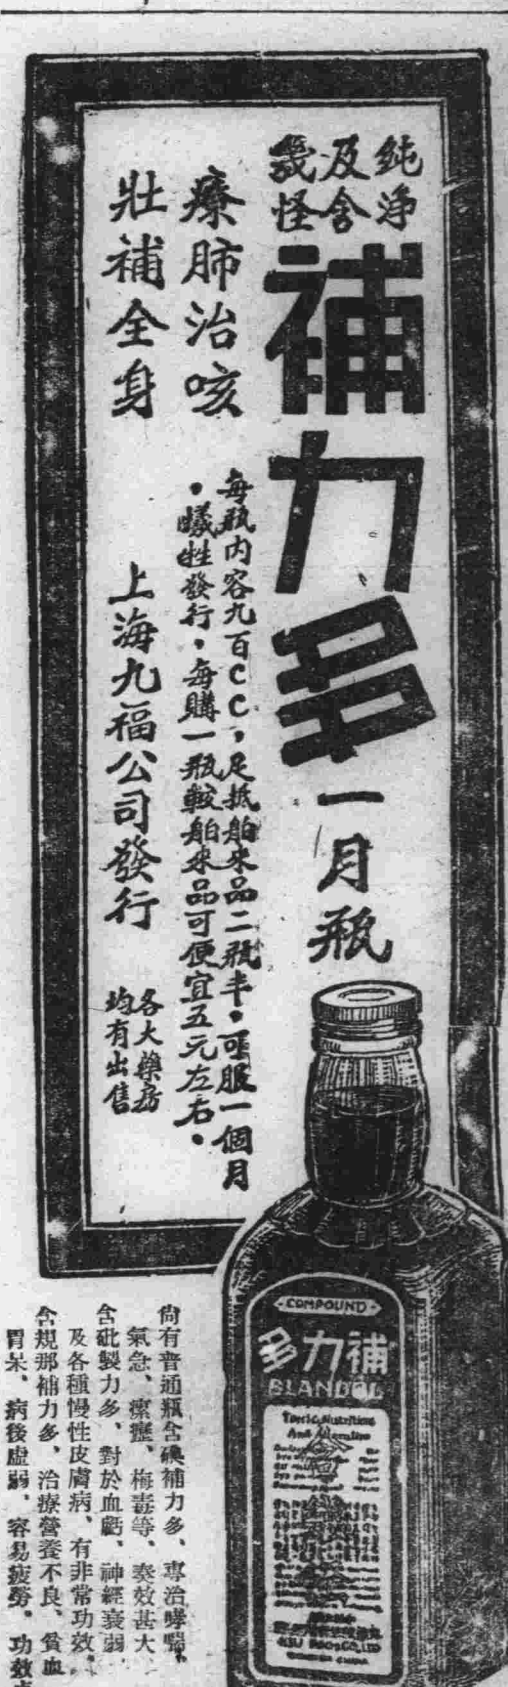 純净
及含
幾怪
補力多
一月瓶
療肺治咳
壯補全身
每瓶内容九百CC，足抵舶來品二瓶半。可服一個月
。犧牲發行。每購一瓶較舶來品可便宜五元左右。
上海九福公司發行
各大藥房
均有出售
COMPOUND
多力補
BLANDOL
Tonic, Nutritive
And Alterative
尚有普通瓶含碘補力多、專治哮喘、
氣急、瘰癧、梅毒等、奏效甚大、
含砒製力多、對於血虧、神經衰弱、
及各種慢性皮膚病、有非常功效。
含規那補力多、治療營養不良、貧血
胃呆、病後虛弱、容易疲勞。功效